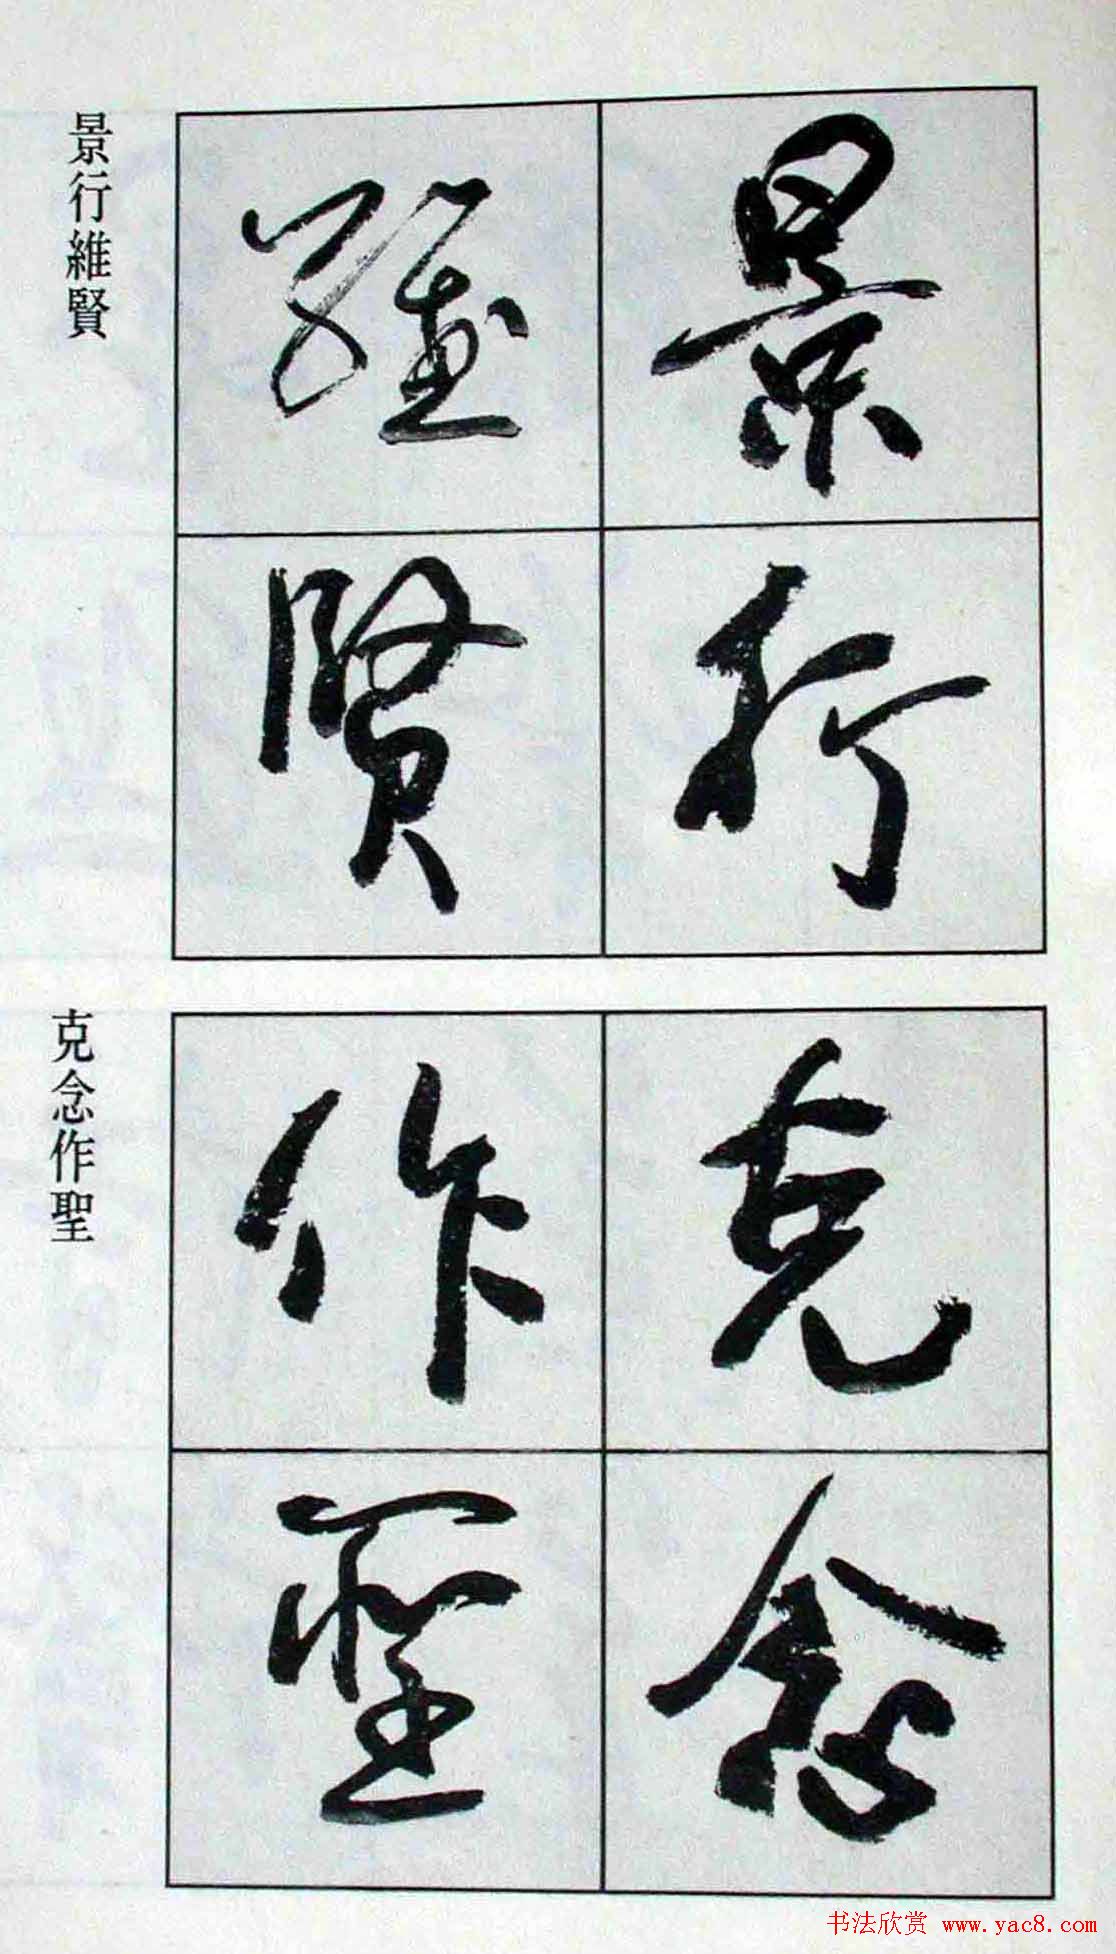 景行
維賢
景行維賢
克念
作聖
克念作聖
书法欣赏 www.yac8.com